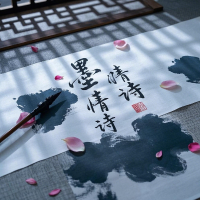 墨情诗
情诗